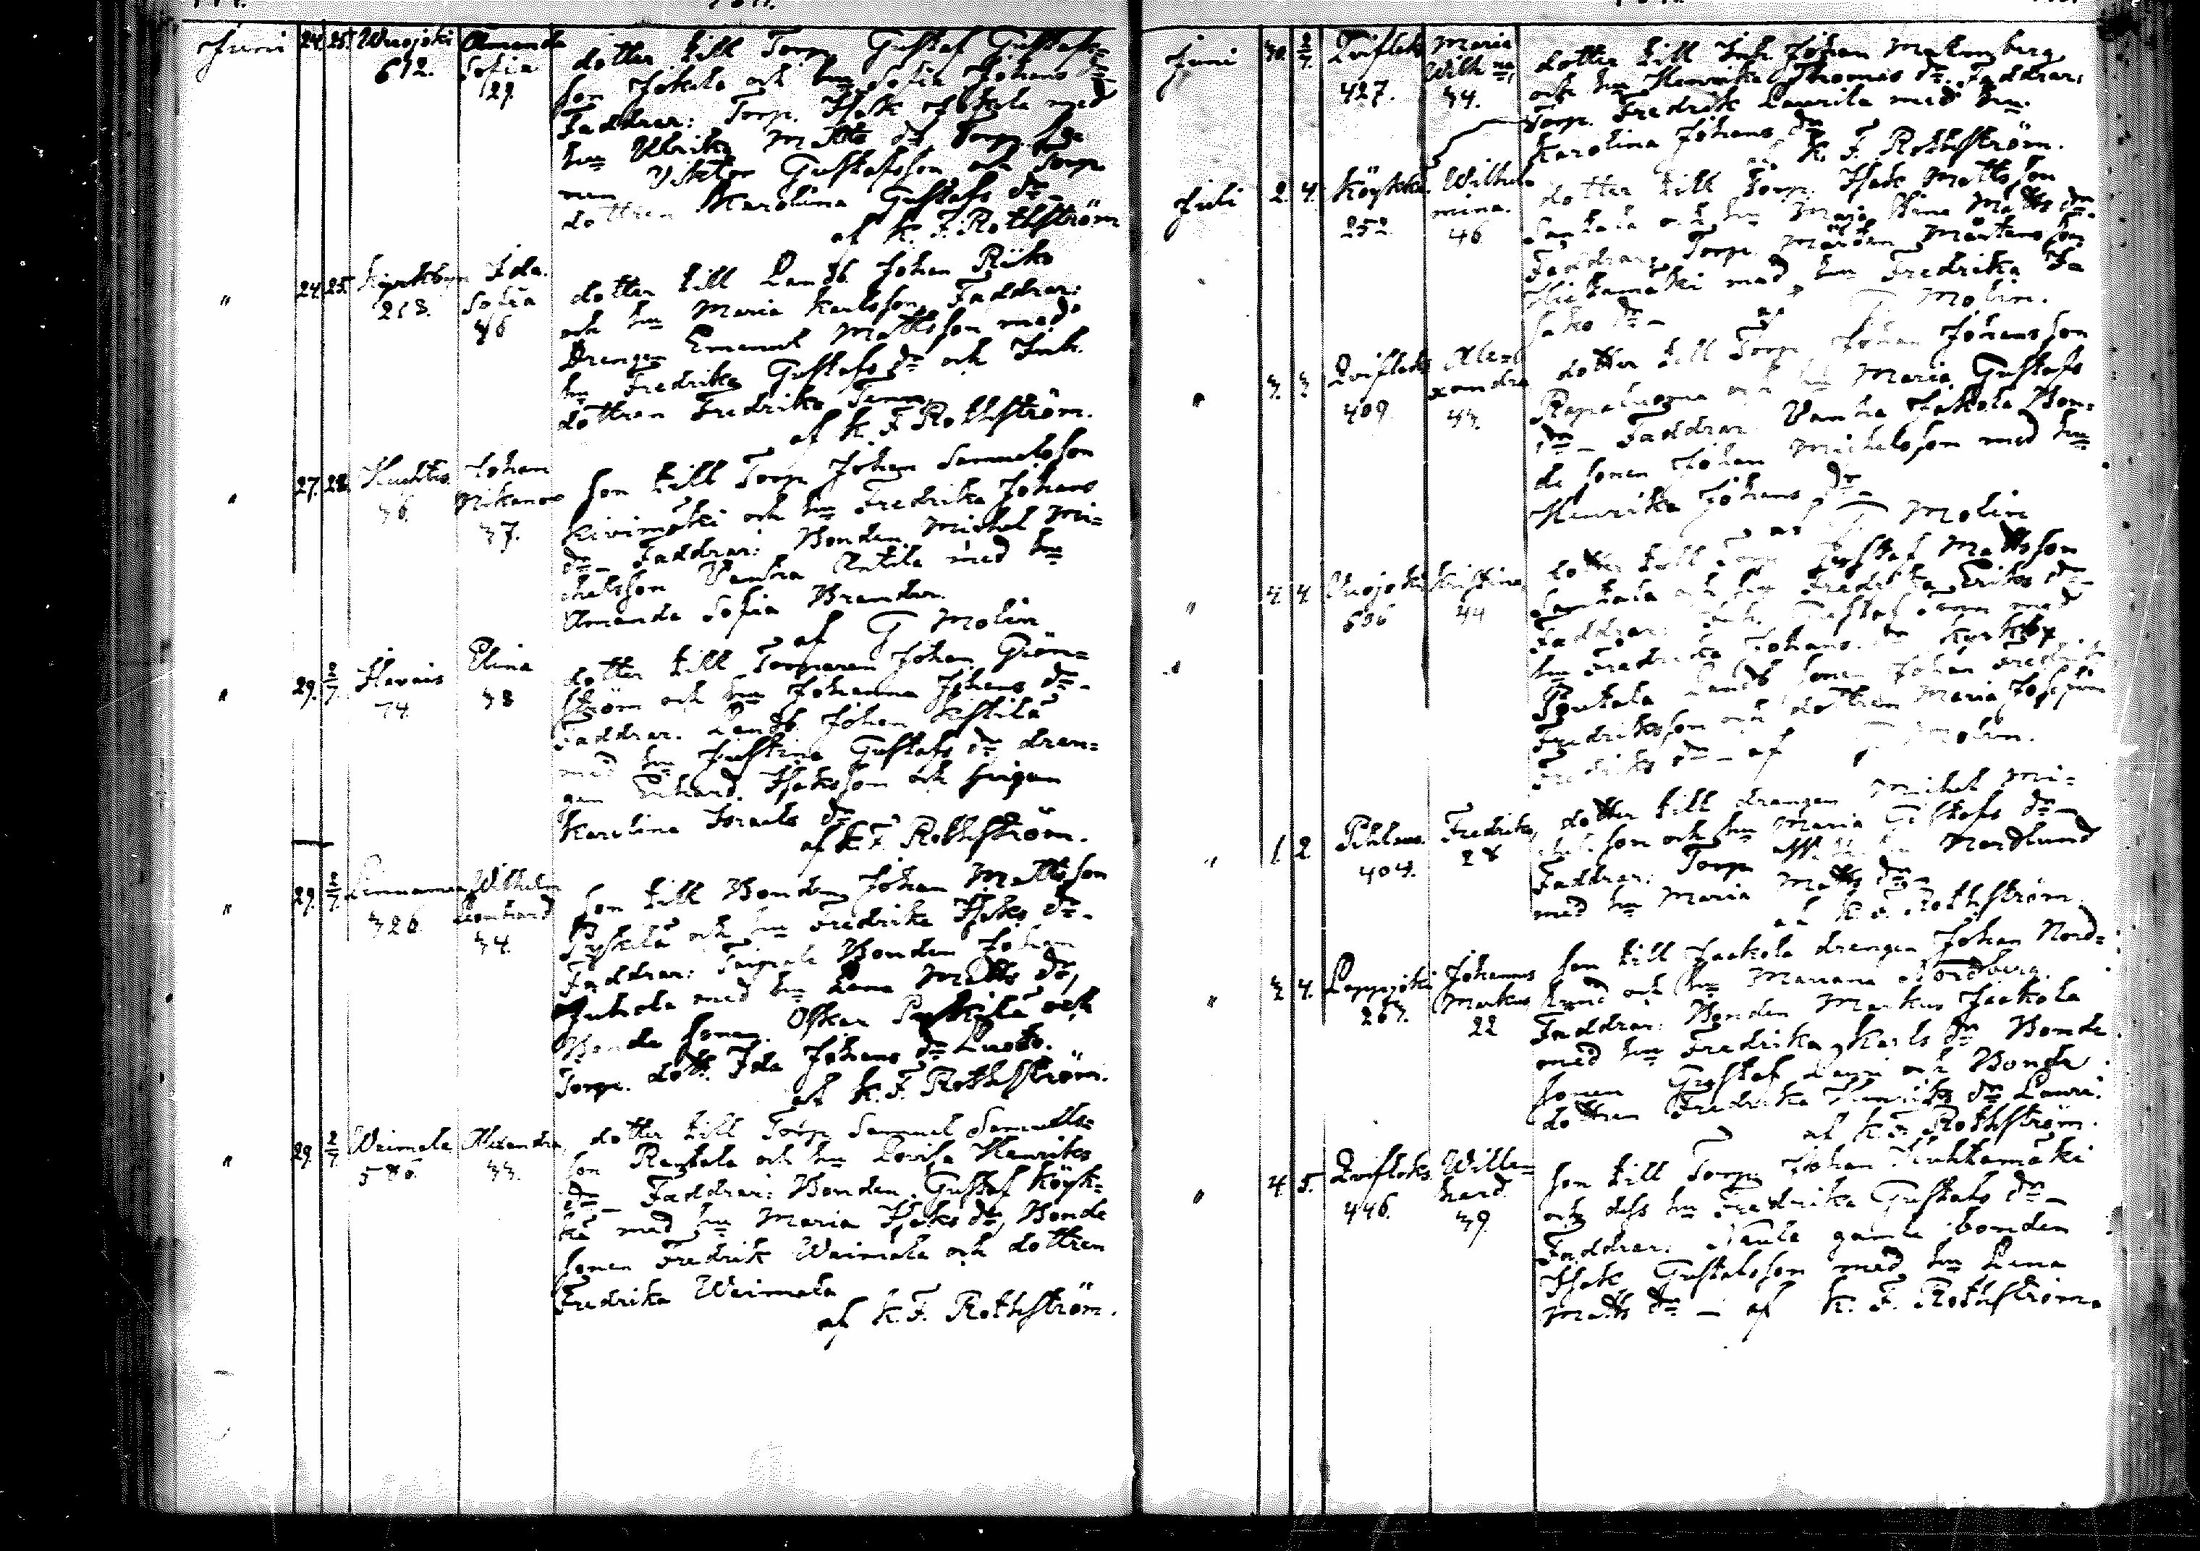 Juni 24. 25. Wuojoki 612. Amanda Sofia 29.
dotter till Torp. Gustaf Gustafs=
son Jokela och hu Sofia Johans dr
Faddrar: Torp. Isak Jokela med
hu Ulrika Matts dr Torp. So=
nen Viktor Gustafsson och Torp
dottren Karolina Gustafs dr
af K. F. Rothström
" 24. 25. Kyrkbyn 213. Ida Sofia 46
dotter till Landb. Johan Riiko
och hu Maria Karlsson. Faddrar:
Drengen Emanuel Mattsson med
hu Fredrika Gustafs dr och Inh.
dottren Fredrika
af K. F. Rothström.
" 27. 28. Huhtis 36. Johan Nikanor 37.
son till Torp Johan Samuelsson
Kivimäki och hu Fredrika Johans
dr Faddrar: Bonden Michel Mi=
chelsson Vanha Antila med hu
Amanda Sofia Brander.
af G Molin
" 29. 2/7 Hevais 74. Elina 38
dotter till Torparen Johan Grön=
ström och hu Johanna Johans dr
Faddrar. Landb. Johan Kestilä
med hu Justina Gustafs dr dren=
gen Erhard Isaksson och pigan
Karolina Israels dr
af K F. Rothström.
" 29. 2/7 326. Wilhelm Leonhard 34.
son till Bonden Johan Mattsson
Pyskilä och hu Fredrika Isaks dr
Faddrar: Bonden Johan
Juhola med hu Lena Matts dr,
Bonde sonen Oskar Pyskilä och
Torp. dott. Ida Johans dr Lusto.
af K. F. Rothström.
" 29. 2/7 Waimala 586. Alexandra 33.
dotter till Torp. Samuel Samuels=
son Rantala och hu Lovisa Henriks
dr Faddrar: Bonden Gustaf Köyk=
kä med hu Maria Isaks dr, Bonde
sonen Fredrik Waimala och dottren
Fredrika Waimala
af K. F. Rothström.
Juni 30. 2/7 Qviflaks 427. Maria Wilh:na 34.
dotter till Inh. Johan Malmberg
och hu Henrika Thomas dr. Faddrar:
Torp. Fredrik Laurila med hu
Karolina Johans dr
K. F. Rothström.
Juli 2. 4. Köykkä 252 Wilhelmina. 46
dotter till Torp. Isak Mattsson
Santala och hu Maria Stina Matts dr.
Faddrar. Torp. Mårten Mårtensson
Hietamäki med hu Fredrika Isa
saks dr af G Molin.
" 3. 3 Qviflaks 409. Alexandra 43.
dotter till Torp. Johan Johansson
Rapaluoma och hu Maria Gustafs
dr Faddrar Vanha Jokela Bon=
de sonen Johan Michelsson med hu
Henrika Johans dr
af G Molin
" 4. 4. Wuojoki 636 Kristina 44
dotter till Torp Gustaf Mattsson
Santala och hu Fredrika Eriks dr
Faddrar: Inh. Gustaf med
hu Fredrika Johans dr Kyrkby
Pentala Landb. sonen Johan Fredrik
Fredriksson och dottren Maria Josefina
Fredriks dr af G Molin.
" 1 2 404. Fredrika 28
dotter till drengen Michel Mi=
chelsson och hu Maria Gustafs dr
Faddrar: Torp Nordlund
med hu Maria Matts dr
af K. F. Rothström.
" 3 4. Lappijoki 263. Johannes Markus 22
son till Jaakola drengen Johan Nord=
lund och hu Mariana Nordberg.
Faddrar: Bonden Markus Jaakola
med hu Fredrika Karls dr Bonde
sonen Gustaf Lauri och Bonde
dottren Fredrika Henriks dr Lauri.
af K. F. Rothström.
" 4. 5. Qviflaks 446. Wille=hard 39.
son till Torp. Johan Huhtamäki
och dess hu Fredrika Gustafs dr
Faddrar: gamla bonden
Isak Gustafsson med hu Lena
Matts dr af K. F. Rothström